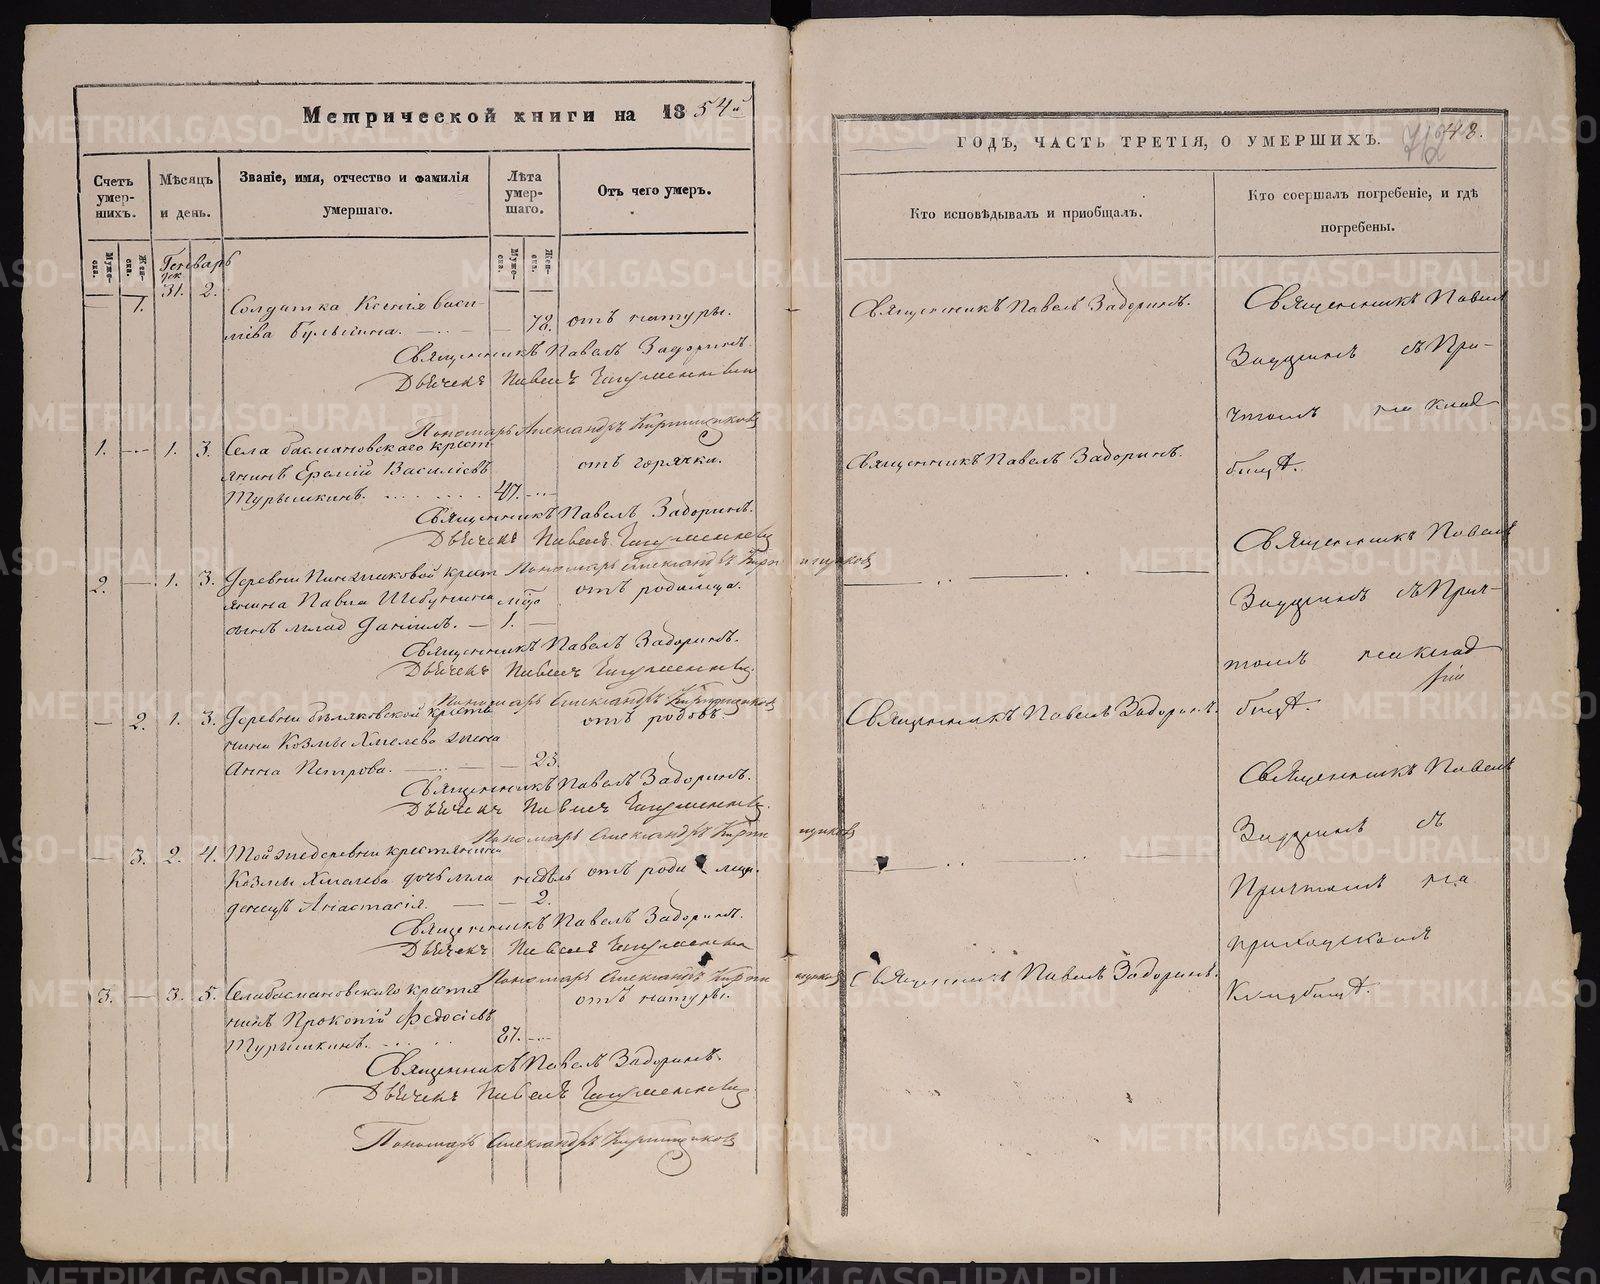 Метрической книги на 1854й
Счетъ умер-шихъ.
Мѣсяцъ и день.
Званіе, имя, отчество и фамилія умершаго.
Лѣта умер-шаго.
Отъ чего умеръ.
Муже-ска.
Жен-ска.
Муже-ска.
Жен-ска.
Генварь
31. 2.
1. Солдатка Ксенія Васи-
лiева Булыгина. 78. отъ натуры.
Священникъ Павелъ Задоринъ.
Дьячекъ Павелъ
Пономарь Александръ Кирпищиковъ
1. 1. 3. Села Басмановскаго крест-
янинъ Еремій Василіевъ отъ горячки.
Турышкинъ. 47.
Священникъ Павелъ Задоринъ.
Дьячекъ Павелъ
Пономарь Александръ Кирпищиковъ
2. 1. 3. Деревни крест
янина Павла сынъ млад Даніилъ. 1. отъ родимца.
Священникъ Павелъ Задоринъ.
Дьячекъ Павелъ
Пономарь Александръ Кирпищиковъ
2. 1. 3. Деревни Бѣляковской кресть
янина Козмы Хмелева жена отъ родовъ.
Анна Петрова. 23.
Священникъ Павелъ Задоринъ.
Дьячекъ Павелъ
Пономарь Александръ Кирпищиковъ
3. 2. 4. Той же деревни крестянина
Козмы Хмелева дочь мла недѣль отъ родимца.
денецъ Анастасія. 2.
Священникъ Павелъ Задоринъ.
Дьячекъ Павелъ
Пономарь Александръ Кирпищиковъ
3. 3. 5. Села Басмановскаго крестя
нинъ Прокопій Федосіевъ отъ натуры.
Турышкинъ. 87.
Священникъ Павелъ Задоринъ.
Дьячекъ Павелъ
Пономарь Александръ Кирпищиковъ
ГОДЪ, ЧАСТЬ ТРЕТІЯ, О УМЕРШИХЪ. 48.
Кто исповѣдывалъ и приобщалъ.
Кто соершалъ погребеніе, и гдѣ погребены.
Священникъ Павелъ Задоринъ.
Священникъ Павелъ Задоринъ.
Священникъ Павелъ Задоринъ.
Священникъ Павелъ Задоринъ.
Священникъ Павелъ
Задоринъ съ При-
чтомъ на клад
бищѣ.
Священникъ Павелъ
Задоринъ съ Прич-
томъ на клад
бищѣ.
Священникъ Павелъ
Задоринъ съ
Причтомъ на
приходскомъ
Кладбищѣ.
METRIKI.GASO-URAL.RU